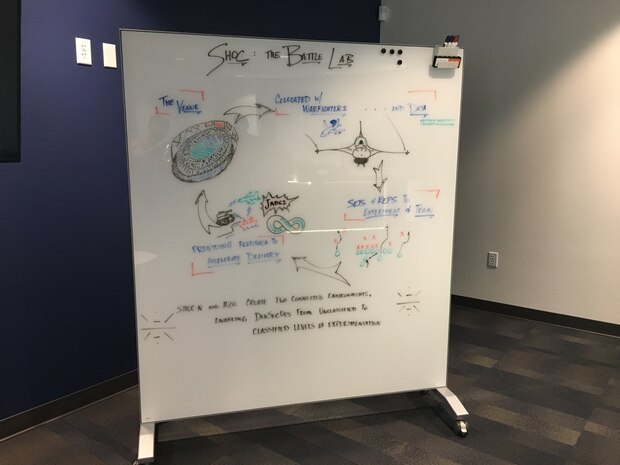 SHOC: THE BATTLE LAB
THE VENUE
COLOCATED W/
WARFIGHTERS .... AND DATA
JADC2
SETS & REPS TO
EXPERIMENT & TRAIN
PROVIDING FEEDBACK TO
ACCELERATE DELIVERY
SHOC-N AND H20 CREATE TWO CONNECTED ENVIRONMENTS,
ENABLING DEVSECOPS FROM UNCLASSIFIED TO
CLASSIFIED LEVELS OF EXPERIMENTATION